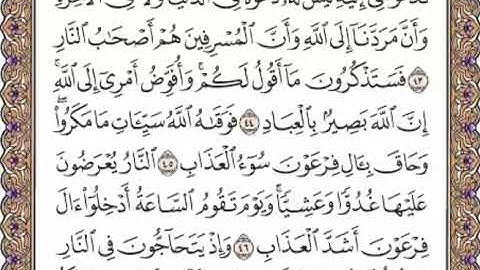 تَدْعُونَنِىٓ إِلَيْهِ لَيْسَ لَهُۥ دَعْوَةٌ فِى ٱلدُّنْيَا وَلَا فِى ٱلْأَخِرَةِ
وَأَنَّ مَرَدَّنَآ إِلَى ٱللَّهِ وَأَنَّ ٱلْمُسْرِفِينَ هُمْ أَصْحَٰبُ ٱلنَّارِ
٤٣ فَسَتَذْكُرُونَ مَآ أَقُولُ لَكُمْ ۚ وَأُفَوِّضُ أَمْرِىٓ إِلَى ٱللَّهِ ۚ
إِنَّ ٱللَّهَ بَصِيرٌۢ بِٱلْعِبَادِ ٤٤ فَوَقَىٰهُ ٱللَّهُ سَيِّـَٔاتِ مَا مَكَرُوا۟ ۖ
وَحَاقَ بِـَٔالِ فِرْعَوْنَ سُوٓءُ ٱلْعَذَابِ ٤٥ ٱلنَّارُ يُعْرَضُونَ
عَلَيْهَا غُدُوًّا وَعَشِيًّا ۖ وَيَوْمَ تَقُومُ ٱلسَّاعَةُ أَدْخِلُوٓا۟ ءَالَ
فِرْعَوْنَ أَشَدَّ ٱلْعَذَابِ ٤٦ وَإِذْ يَتَحَآجُّونَ فِى ٱلنَّارِ